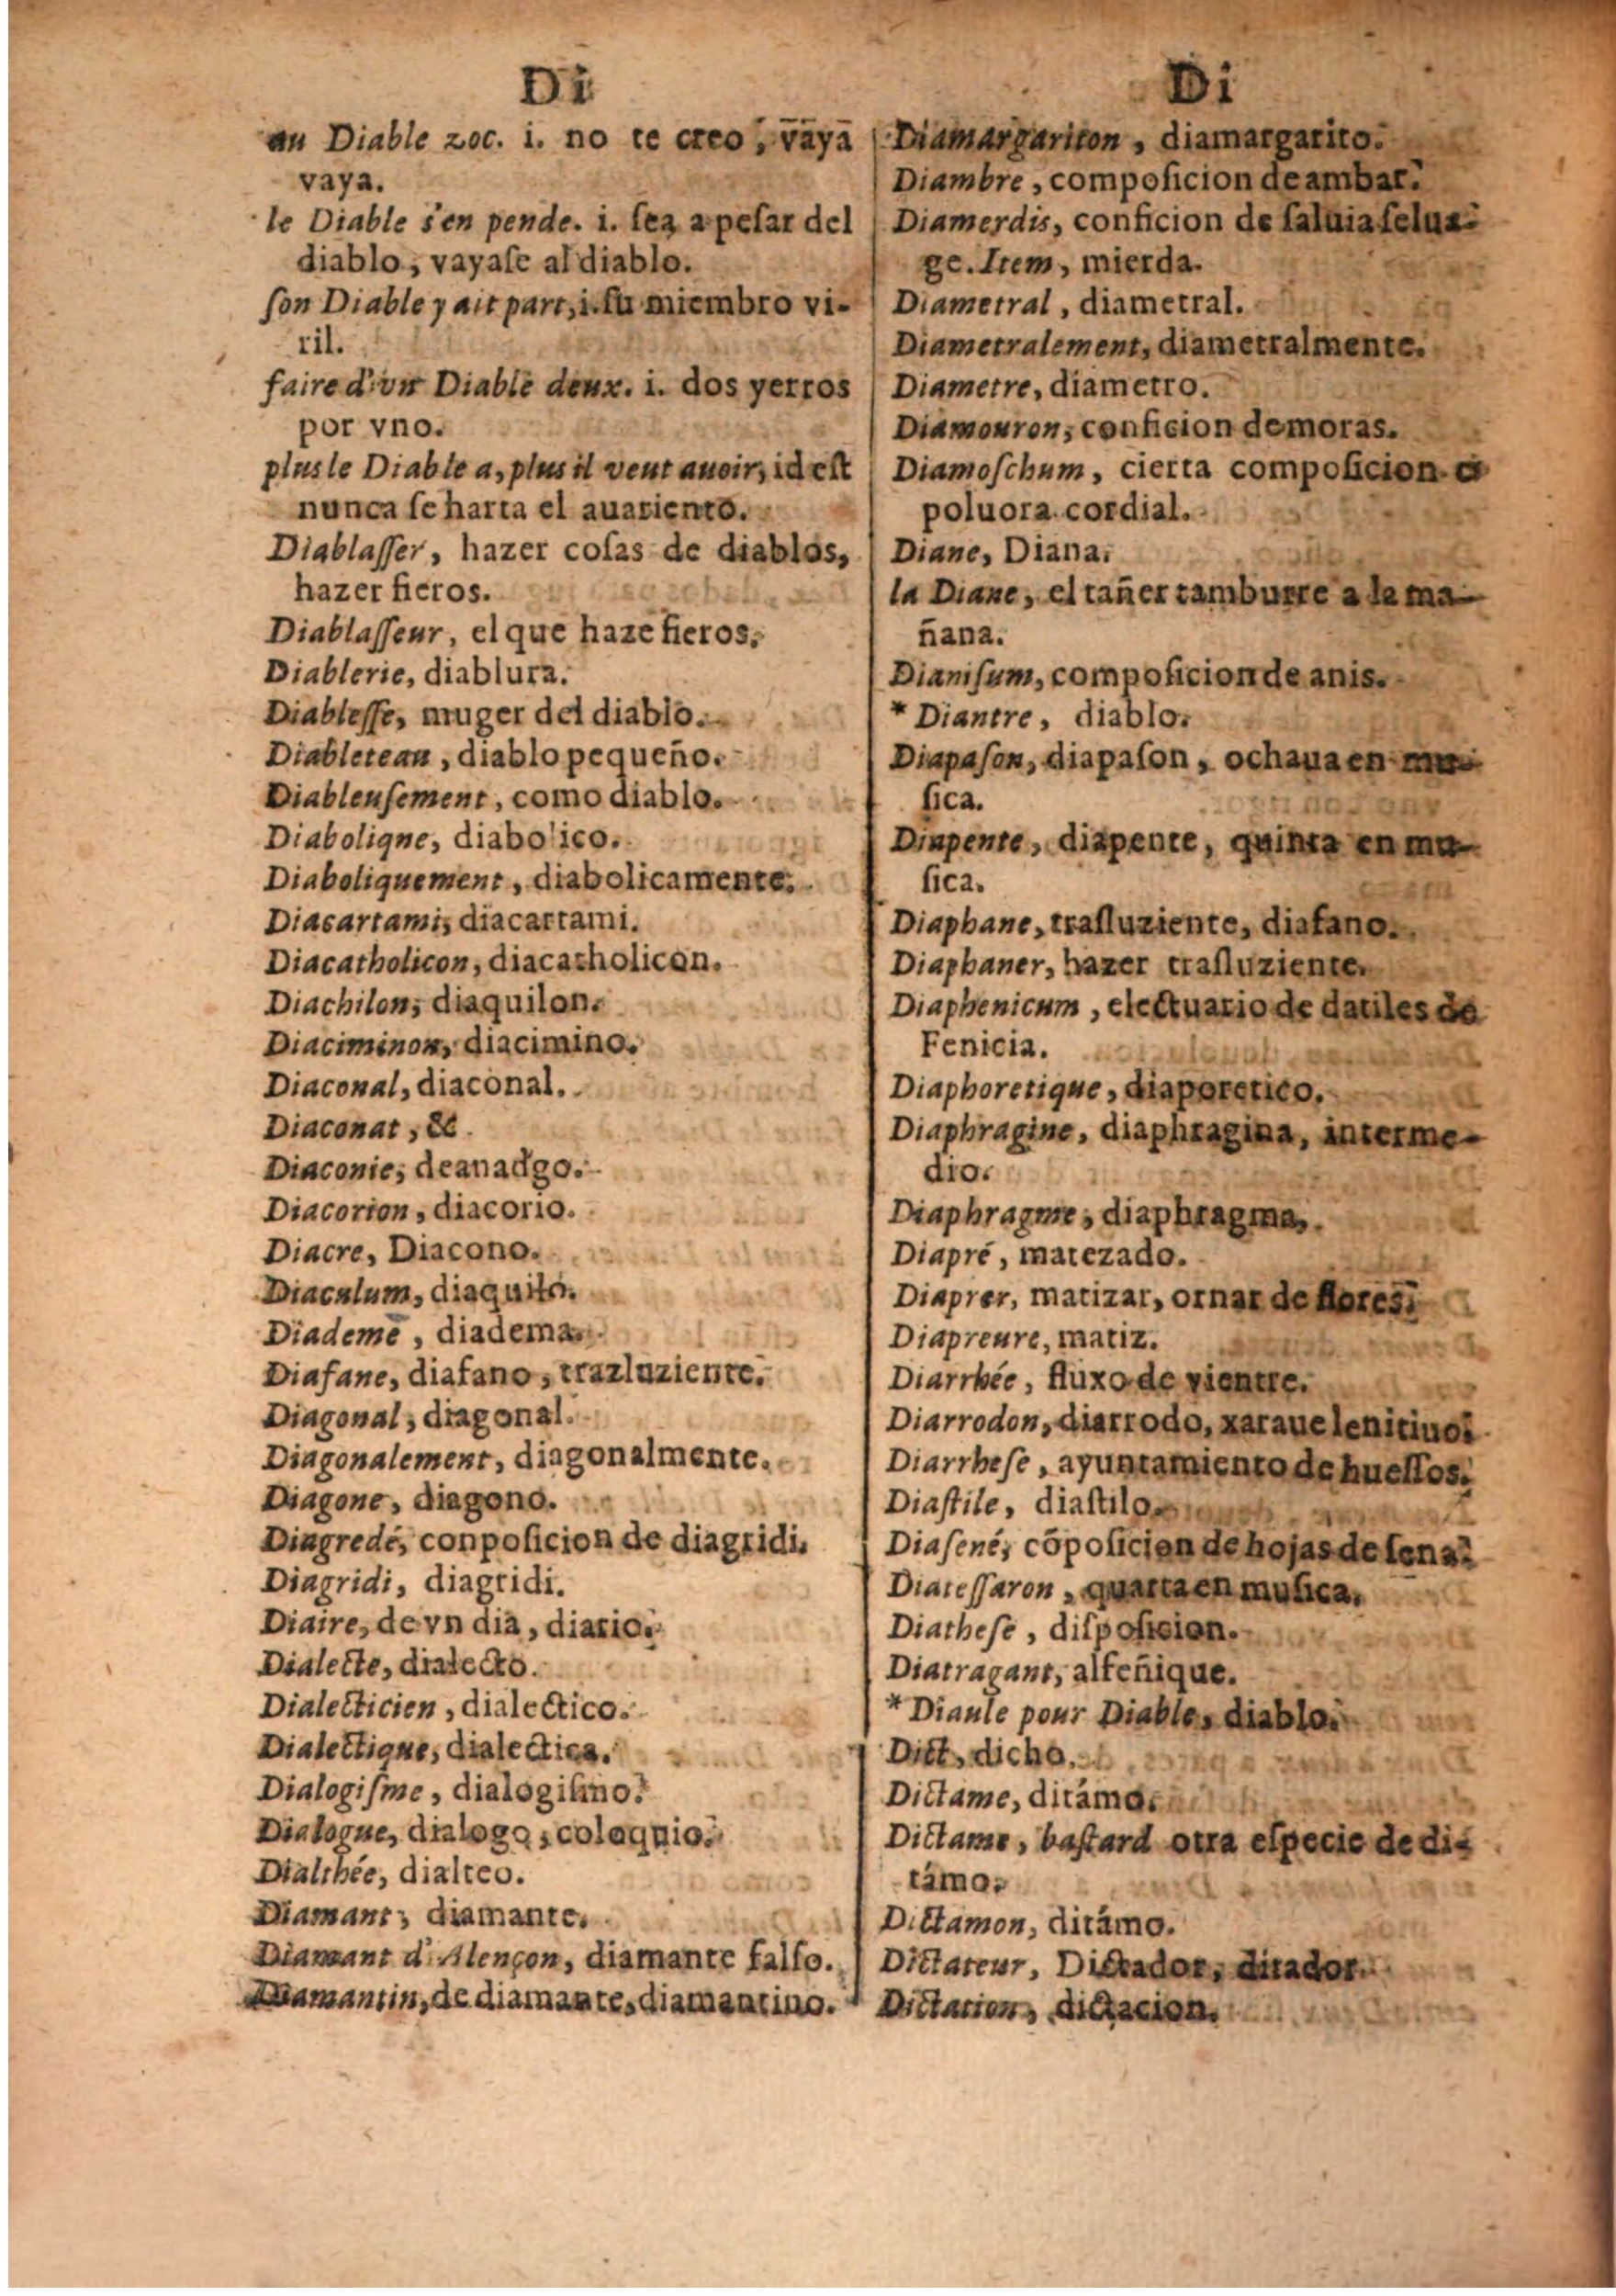 Di
au Diable zoc. i. no te creo, vaya
vaya.
le Diable s'en pende. i. ſea a peſar del
diablo, vayaſe al diablo.
ſon Diable y ait part, i. ſu miembro vi-
ril.
faire d'vn Diable deux. i. dos yerros
por vno.
plus le Diable a, plus il veut auoir, id eſt
nunca ſe harta el auariento.
Diablaſſer, hazer coſas de diablos,
hazer fieros.
Diablaſſeur, el que haze fieros.
Diablerie, diablura.
Diableſſe, muger del diablo.
Diableteau, diablo pequeño.
Diableuſement, como diablo.
Diabolique, diabolico.
Diaboliquement, diabolicamente.
Diacartami, diacartami.
Diacatholicon, diacatholicon.
Diachilon, diaquilon.
Diaciminon, diacimino.
Diaconal, diaconal.
Diaconat, &c.
Diaconie, deanadgo.
Diacorion, diacorio.
Diacre, Diacono.
Diaculum, diaquilo.
Diademe, diadema.
Diafane, diafano, trazluziente.
Diagonal, diagonal.
Diagonalement, diagonalmente.
Diagone, diagono.
Diagredé, conpoſicion de diagridi.
Diagridi, diagridi.
Diaire, de vn dia, diario.
Dialecte, dialecto.
Dialecticien, dialectico.
Dialectique, dialectica.
Dialogiſme, dialogiſmo.
Dialogue, dialogo, coloquio.
Dialthée, dialteo.
Diamant, diamante.
Diamant d'Alençon, diamante falſo.
Diamantin, de diamante, diamantino.
Di
Diamargariton, diamargarito.
Diambre, compoſicion de ambar.
Diamerdis, conficion de ſaluia ſelua-
ge. Item, mierda.
Diametral, diametral.
Diametralement, diametralmente.
Diametre, diametro.
Diamouron, conficion de moras.
Diamoſchum, cierta compoſicion o
poluora cordial.
Diane, Diana.
la Diane, el tañer tamburre a la ma-
ñana.
Dianiſum, compoſicion de anis.
* Diantre, diablo.
Diapaſon, diapaſon, ochaua en mu-
ſica.
Diapente, diapente, quinta en mu-
ſica.
Diaphane, traſluziente, diafano.
Diaphaner, hazer traſluziente.
Diaphenicum, electuario de datiles de
Fenicia.
Diaphoretique, diaporetico.
Diaphragine, diaphragina, interme-
dio.
Diaphragme, diaphragma.
Diapré, matezado.
Diaprer, matizar, ornar de flores.
Diapreure, matiz.
Diarrhée, fluxo de vientre.
Diarrodon, diarrodo, xaraue lenitiuo.
Diarrheſe, ayuntamiento de hueſſos.
Diaſtile, diaſtilo.
Diaſené, cõpoſicion de hojas de ſena.
Diateſſaron, quarta en muſica.
Diatheſe, diſpoſicion.
Diatragant, alfeñique.
* Diaule pour Diable, diablo.
Dict, dicho.
Dictame, ditámo.
Dictame, baſtard otra eſpecie de di-
támo.
Dictamon, ditámo.
Dictateur, Dictador, ditador.
Dictation, dictacion.